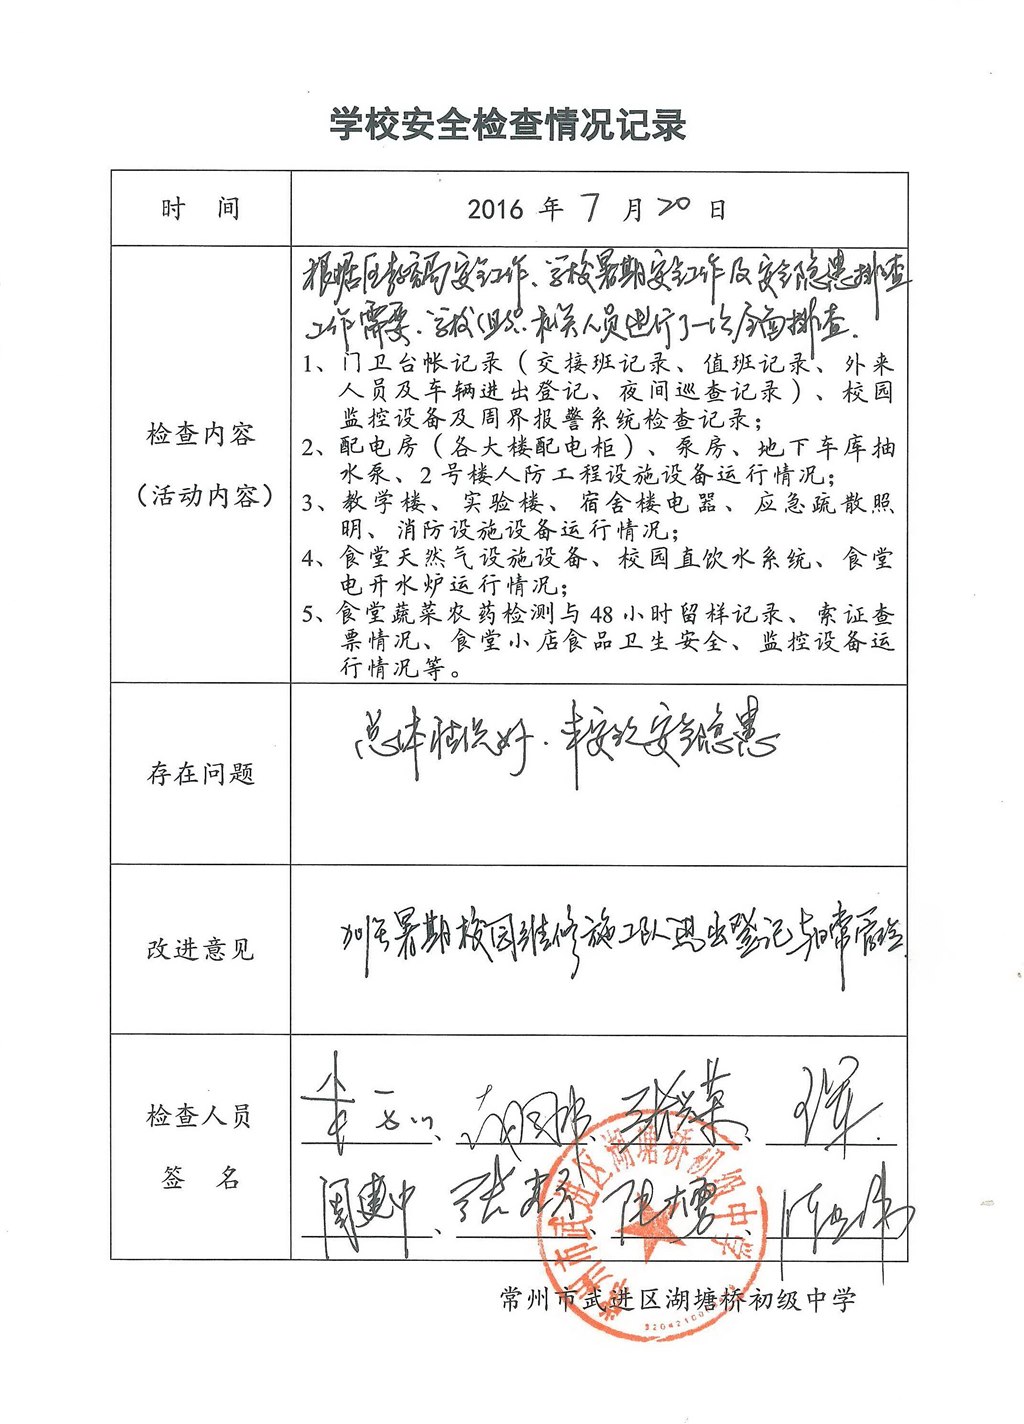 学校安全检查情况记录
时 间
2016 年 7 月 20 日
检查内容
（活动内容）
根据区教育局安全工作、学校暑期安全工作及安全隐患排查
工作需要，学校组织相关人员进行了一次全面排查.
1、门卫台帐记录（交接班记录、值班记录、外来
人员及车辆进出登记、夜间巡查记录）、校园
监控设备及周界报警系统检查记录；
2、配电房（各大楼配电柜）、泵房、地下车库抽
水泵、2 号楼人防工程设施设备运行情况；
3、教学楼、实验楼、宿舍楼电器、应急疏散照
明、消防设施设备运行情况；
4、食堂天然气设施设备、校园直饮水系统、食堂
电开水炉运行情况；
5、食堂蔬菜农药检测与 48 小时留样记录、索证查
票情况、食堂小店食品卫生安全、监控设备运
行情况等。
存在问题
总体状况好. 安全隐患
改进意见
加强暑期校园维修施工队进出登记与日常
检查人员
签 名
周建中、张
常州市武进区湖塘桥初级中学
常州市武进区湖塘桥初级中学